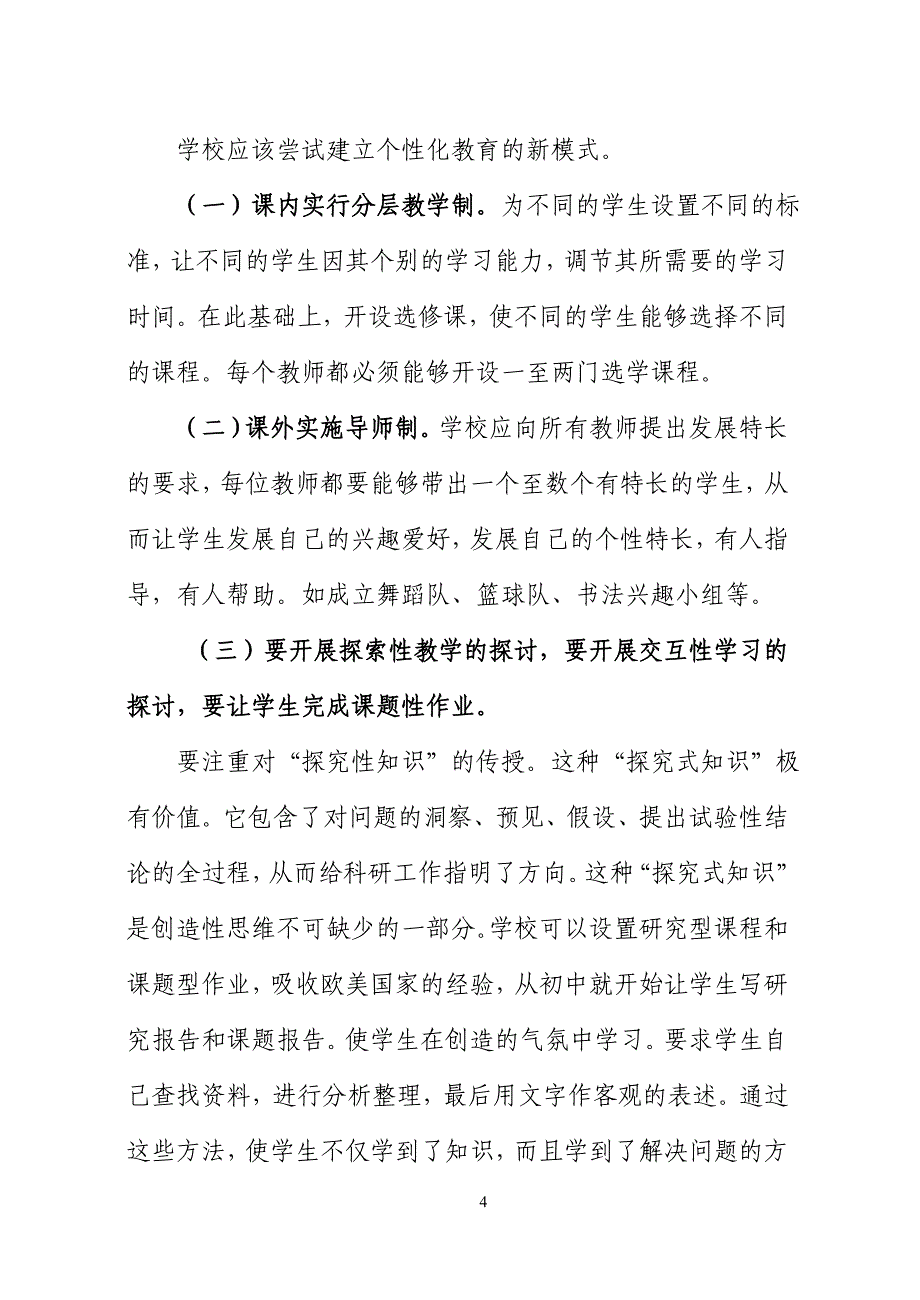 学校应该尝试建立个性化教育的新模式。
（一）课内实行分层教学制。为不同的学生设置不同的标
准，让不同的学生因其个别的学习能力，调节其所需要的学习
时间。在此基础上，开设选修课，使不同的学生能够选择不同
的课程。每个教师都必须能够开设一至两门选学课程。
（二）课外实施导师制。学校应向所有教师提出发展特长
的要求，每位教师都要能够带出一个至数个有特长的学生，从
而让学生发展自己的兴趣爱好，发展自己的个性特长，有人指
导，有人帮助。如成立舞蹈队、篮球队、书法兴趣小组等。
（三）要开展探索性教学的探讨，要开展交互性学习的
探讨，要让学生完成课题性作业。
要注重对“探究性知识”的传授。这种“探究式知识”极
有价值。它包含了对问题的洞察、预见、假设、提出试验性结
论的全过程，从而给科研工作指明了方向。这种“探究式知识”
是创造性思维不可缺少的一部分。学校可以设置研究型课程和
课题型作业，吸收欧美国家的经验，从初中就开始让学生写研
究报告和课题报告。使学生在创造的气氛中学习。要求学生自
己查找资料，进行分析整理，最后用文字作客观的表述。通过
这些方法，使学生不仅学到了知识，而且学到了解决问题的方
4